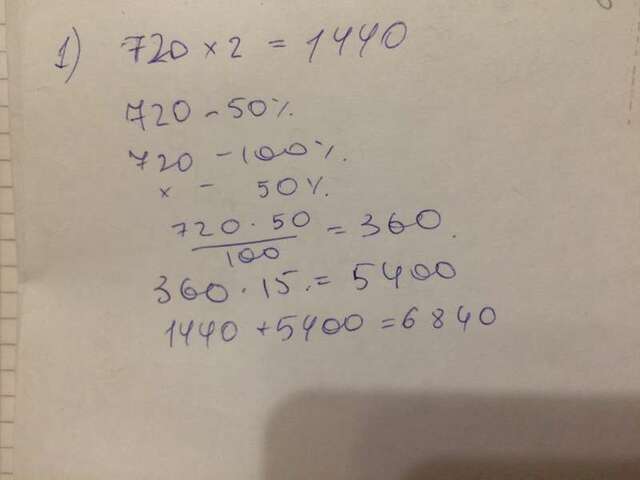 1) 720 × 2 = 1440
720 - 50%.
720 - 100%.
x - 50%.
720 · 50
100
= 360.
360 · 15. = 5400
1440 + 5400 = 6840